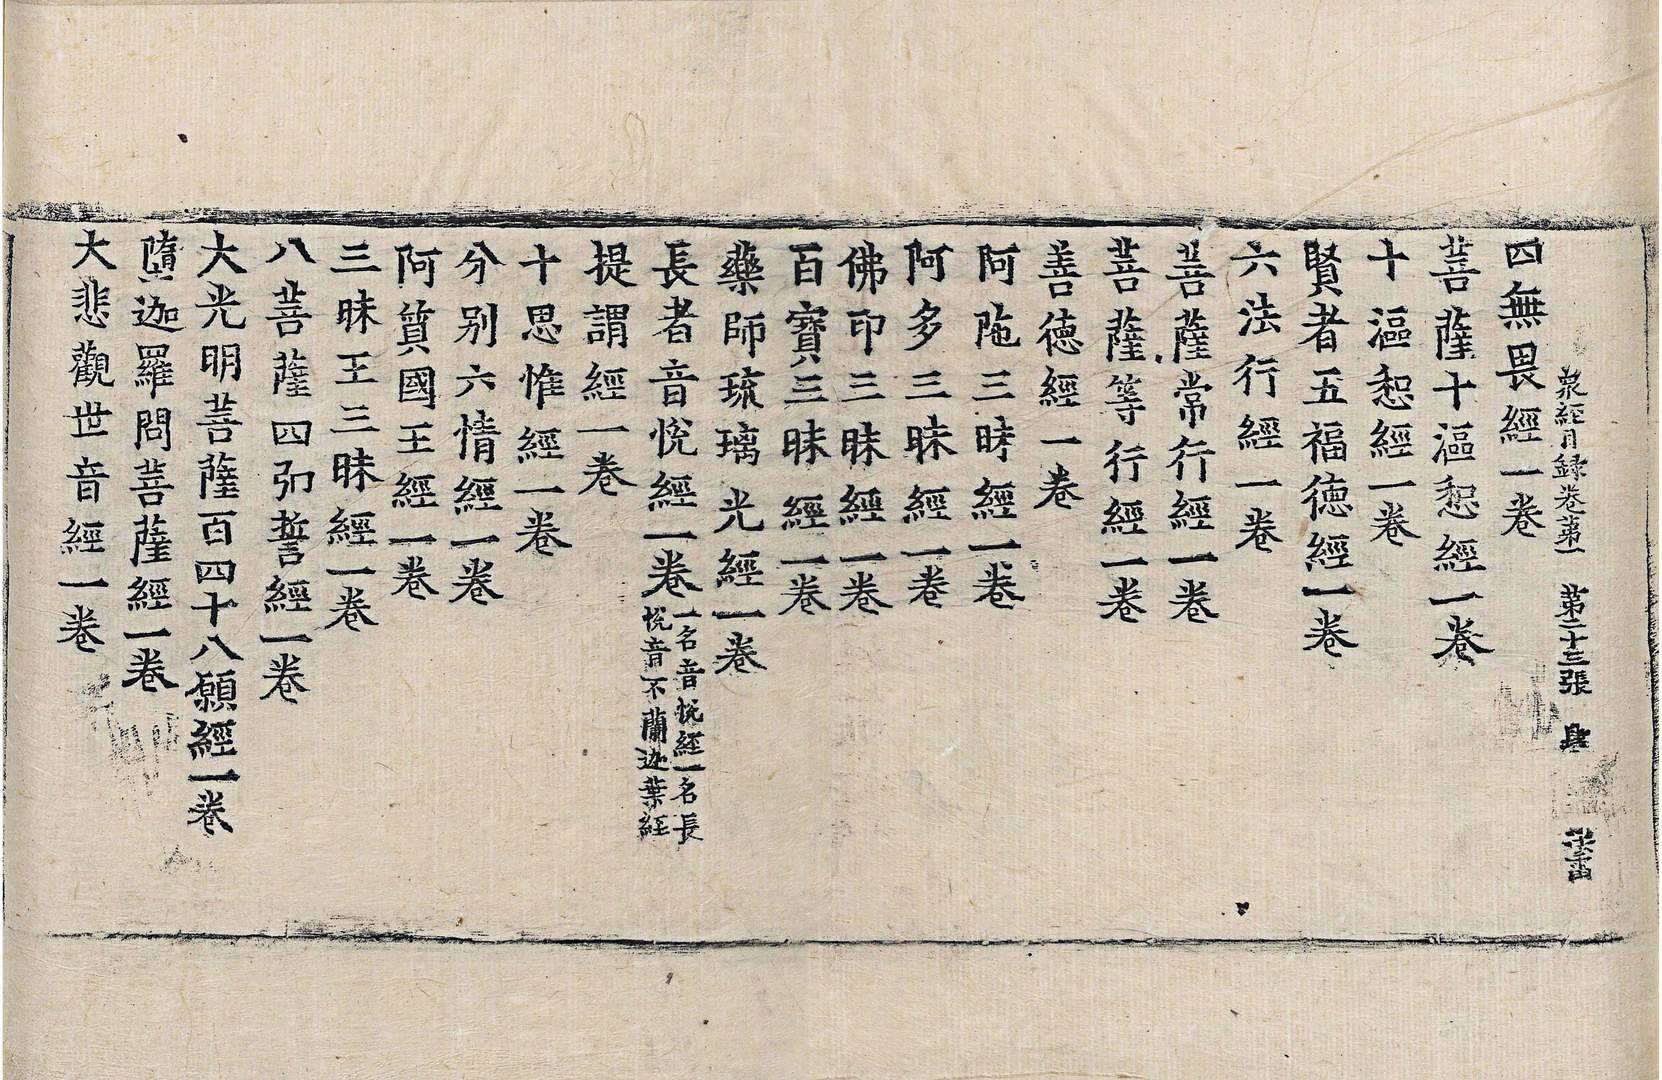 衆經目録卷第一 第二十三張
四無畏經一卷
菩薩十漚惒經一卷
十漚惒經一卷
賢者五福德經一卷
六法行經一卷
菩薩常行經一卷
菩薩等行經一卷
善德經一卷
阿陁三昧經一卷
阿多三昧經一卷
佛印三昧經一卷
百寳三昧經一卷
藥師琉璃光經一卷
長者音悅經一卷 一名音悅經一名長
悅音不蘭迦葉經
提謂經一卷
十思惟經一卷
分别六情經一卷
阿質國王經一卷
三昧王三昧經一卷
八菩薩四弘誓經一卷
大光明菩薩百四十八願經一卷
墮迦羅問菩薩經一卷
大悲觀世音經一卷